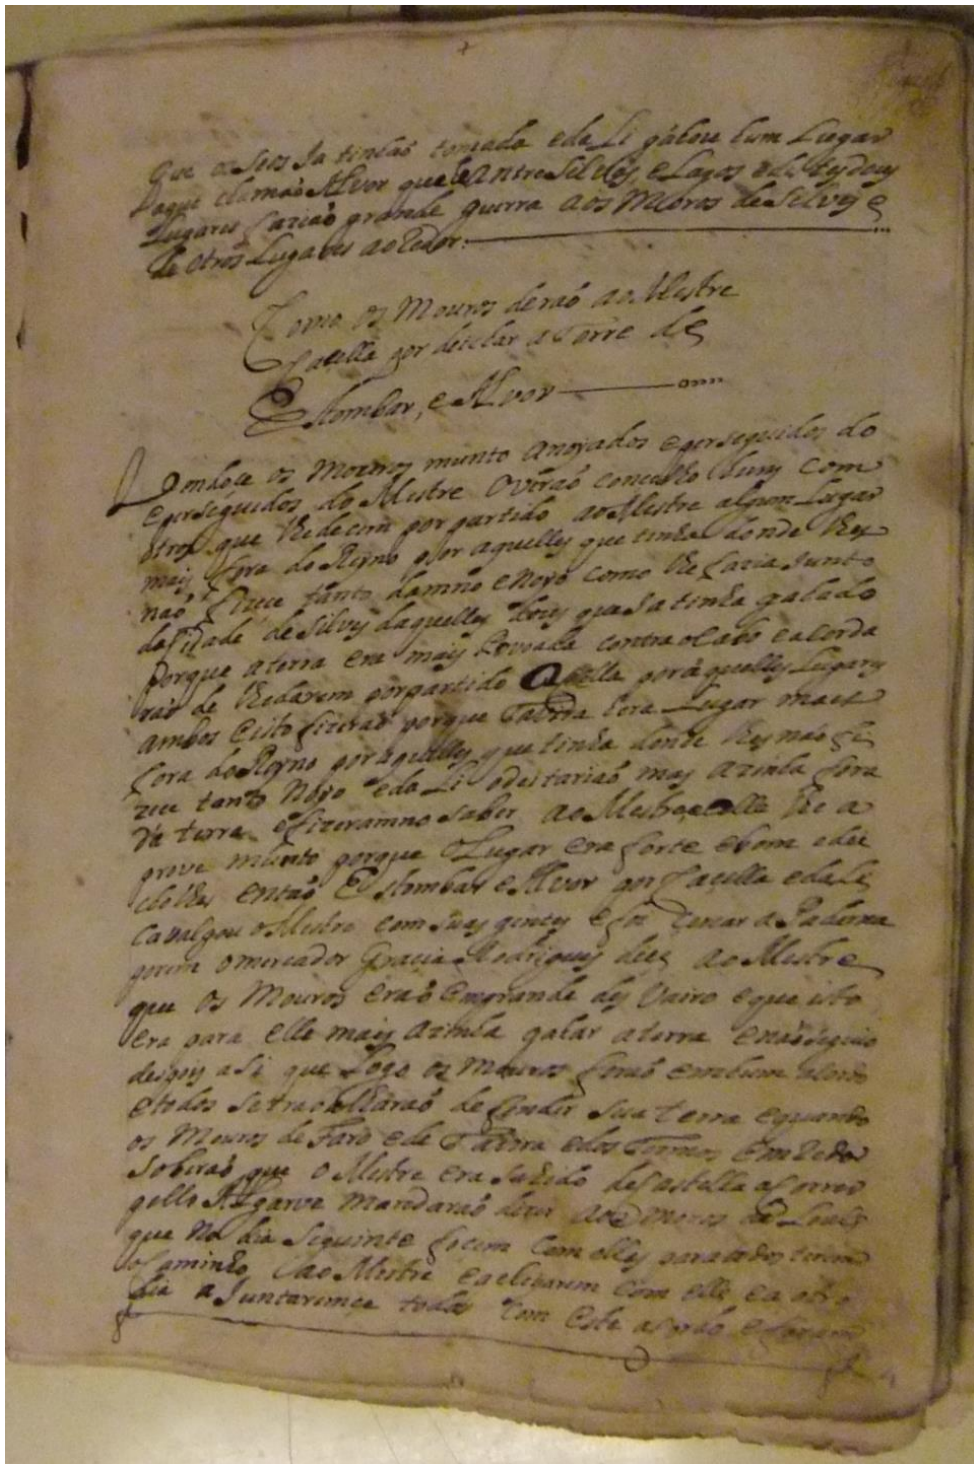 que os seos Ja tinhaõ tomada e da Li gàhou hum Lugar
Daque chamaõ Alvor que he Antre Silves e Lagos e destes dous
Lugares faziaõ grande guerra aos Moros de Silves e
de otros Lugares ao Redor.
Como os Mouros deraõ ao Mestre
Cacella por deichar a Torre de
Estombar, e Alvor
Vendoce os Mouros munto anojados e perseguidos do
e perseguidos do Mestre Overaõ concelho huns com
otros que lhe decem por partido ao Mestre algum Lugar
mais fora do Reyno por aquelles que tinha donde lhes
naõ fizece tanto damno e nojo como lhe fazia Junto
da Cidade de Silves daquelles dois que Ja tinha gahado
Porque a terra era mais povoada contra o Cabo e acorda
raõ de lhe darem por partido Cacella por àquelles Lugares
ambos e isto fizeraõ porque Tavira hera Lugar mais
fora do Reyno por aquelles que tinha donde lhes naõ fi
zece tanto Nojo e da Li o deitariaõ mais azinha fora
da terra e fizeramno saber ao Mestre e elle lhe a
prove munto porque o Lugar era forte e bom e deu
lhes entaõ Estombar e Alvor por Cacella e da Li
Cavalgou o Mestre com suas gentes e foi tomar a Paderna
porem o mercador Gracia Rodrigues dice ao Mestre
que os Mouros eraõ em grande des Vairo e que isto
era para elle mais azinha gahar a terra e naõ seguio
depois asi que Logo os Mouros foraõ em hum acordo
e todos se trabalharaõ defender sua terra e quando
os Mouros de Faro e de Tavira e dos Termos em Redor
Soberaõ que o Mestre era sahido de Castella a correr
pello Algarve mandaraõ dizer aos Moros de Loulé
que no dia Seguinte focem com elles para todos terem
o Caminho ao Mestre e a elle com elle e a otro
dia a Juntaremce todos com este acordo e foram